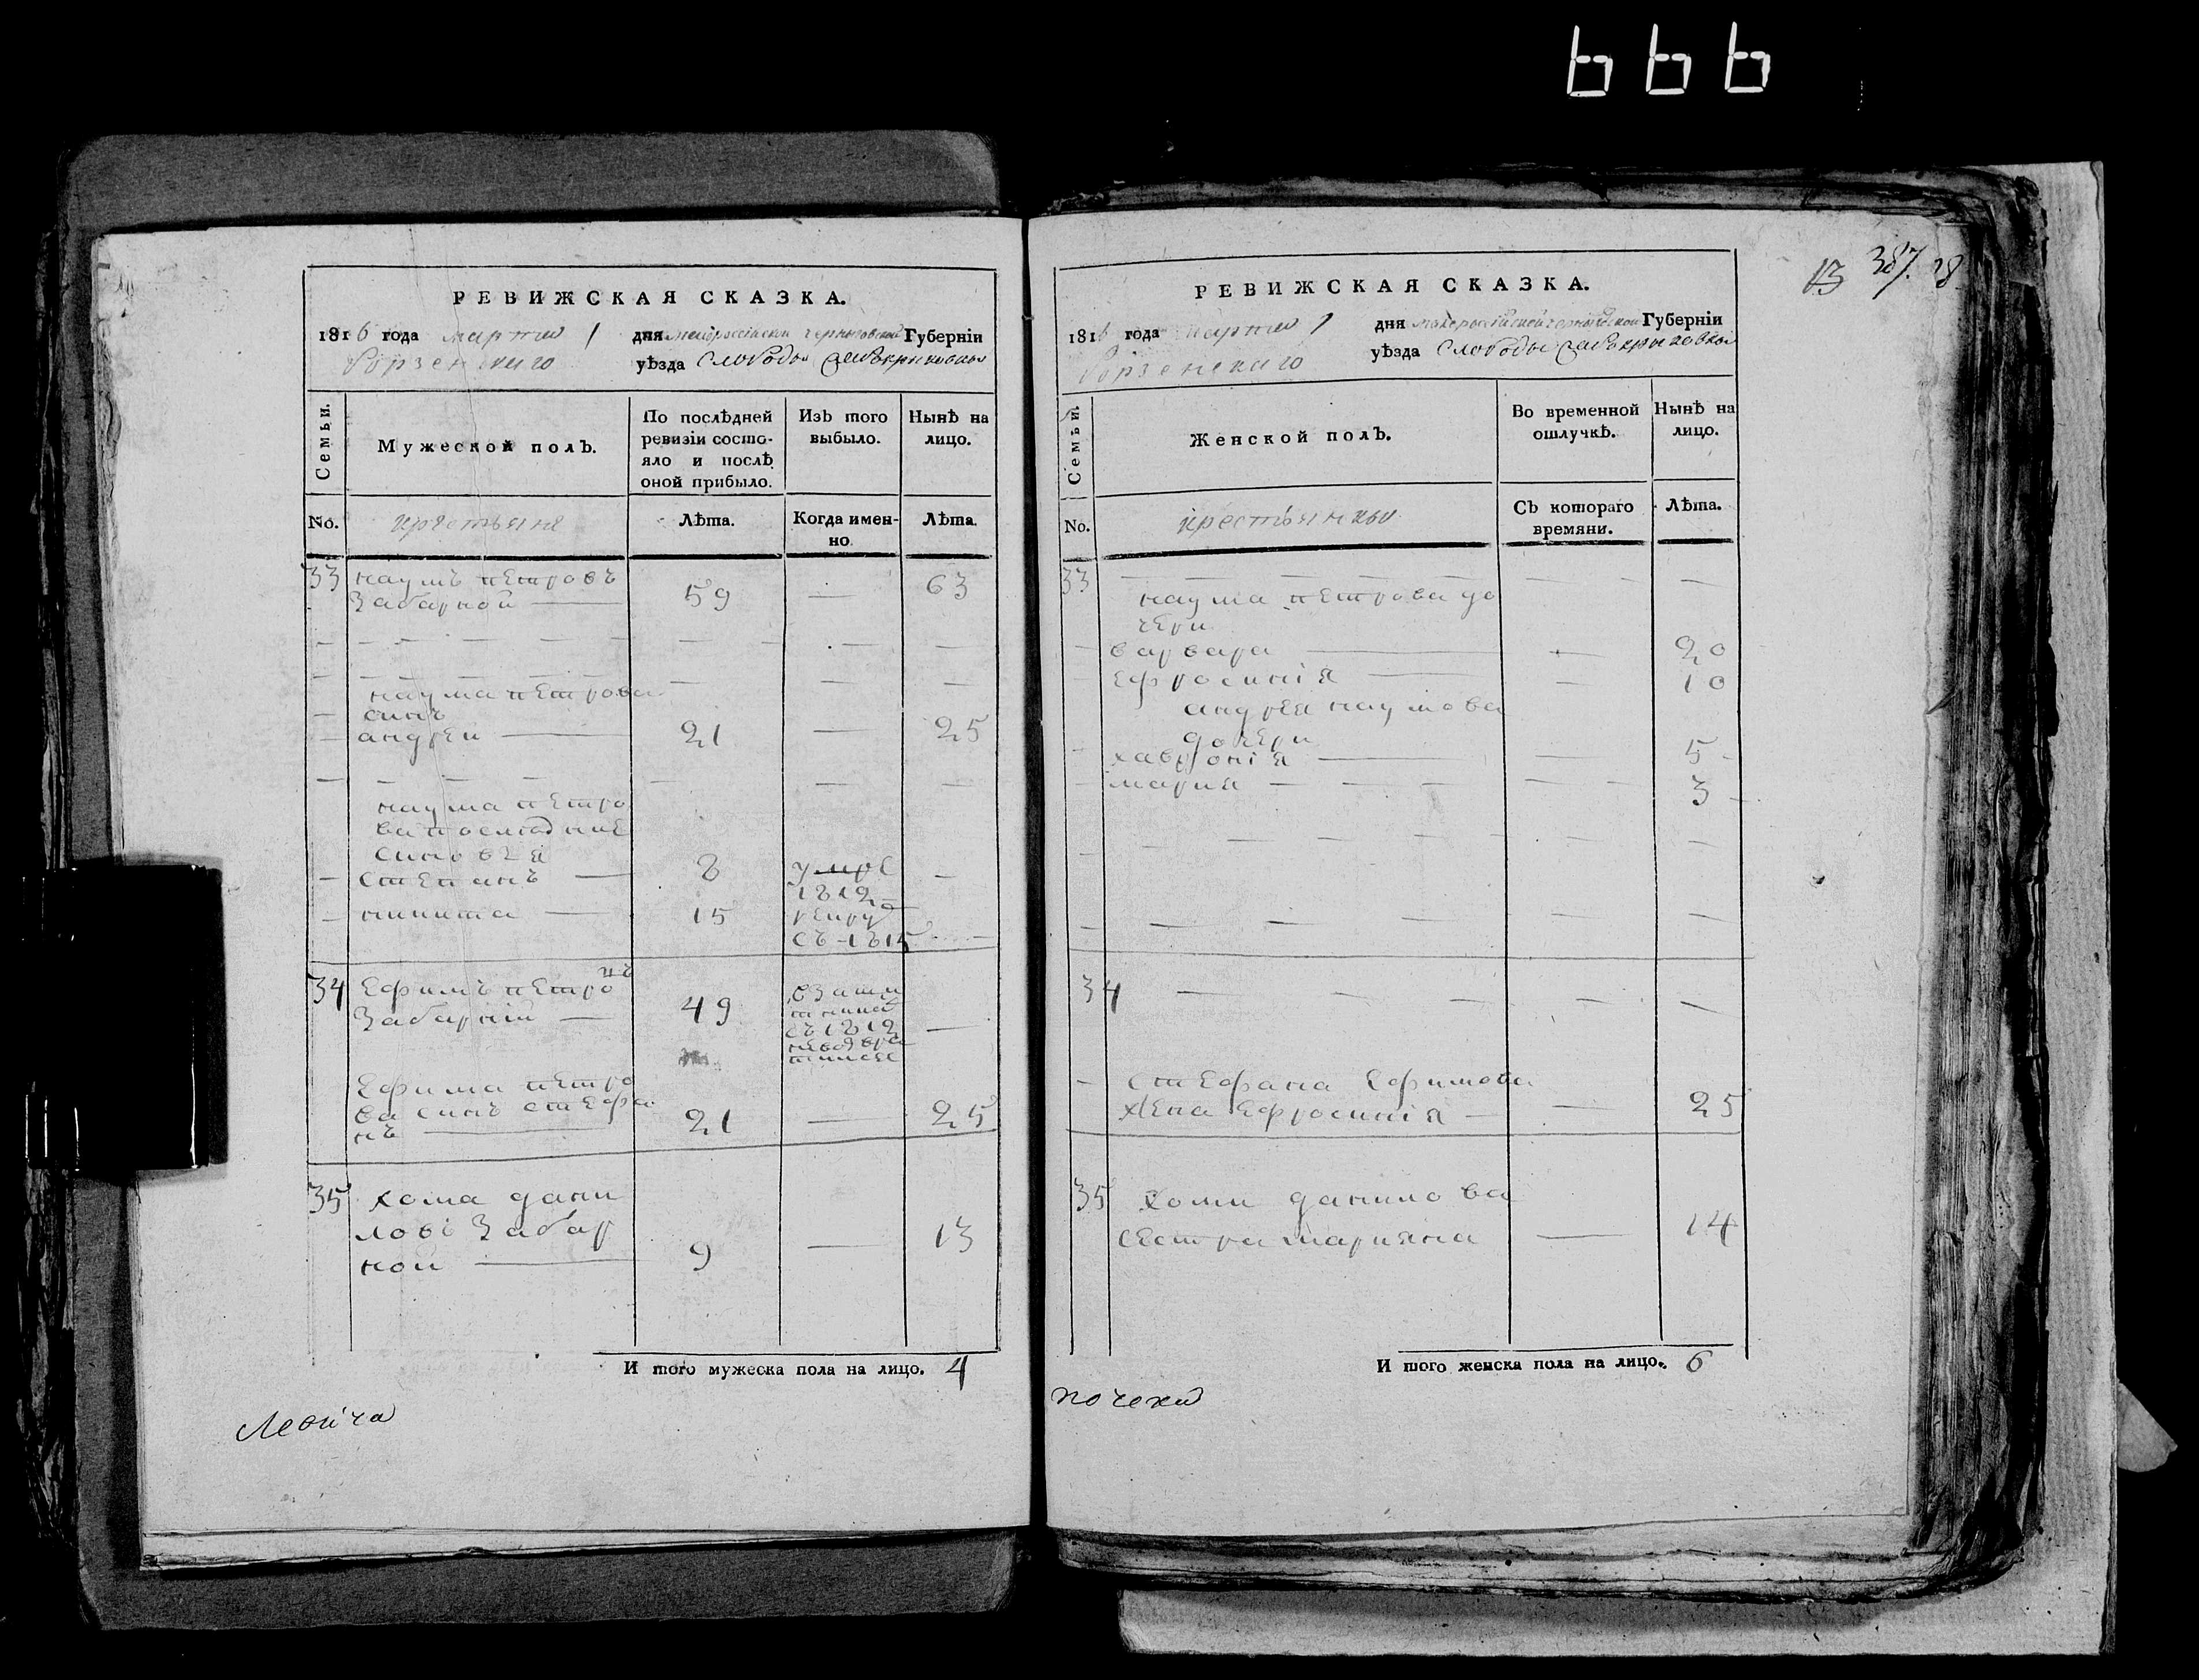 666
РЕВИЖСКАЯ СКАЗКА.
1816 года марта 1 дня малоросійской черниговской Губерніи
Борзенскаго уѣзда Слободы
Семьи.
Мужеской полъ.
По послѣдней ревизіи состояло и послѣ оной прибыло.
Изъ того выбыло.
Нынѣ на лицо.
No.
крестьяне
Лѣта.
Когда именно.
Лѣта.
33 наумъ петровъ
Забарной — 59 — 63
наума петрова
синъ
андрей — 21 — 25
наума петро
ва последние
синовья
степанъ — 8 умре
1812 —
никита — 15 рекру
съ 1815 —
34 Ефимъ петро
Забарній — 49
1812 —
Ефима петро
ва синъ стефа
нъ — 21 — 25
35 хома дани
ловъ Забар
ной — 9 — 13
И того мужеска пола на лицо. 4
Левича
13 387. 28
РЕВИЖСКАЯ СКАЗКА.
1816 года марта 1 дня малоросійской черниговской Губерніи
Борзенскаго уѣзда Слободы
Семьи.
Женской полъ.
Во временной отлучкѣ.
Нынѣ на лицо.
No.
крестьянки
Съ котораго времяни.
Лѣта.
33
наума петрова до
чери
варвара — — 20
ефросинія — — 10
андрея наумова
дочери
хавронія — — 5
мария — — 3
34
стефана Ефимова
жена Ефросинія — — 25
35 хоми данилова
сестра марияна — 14
И того женска пола на лицо. 6